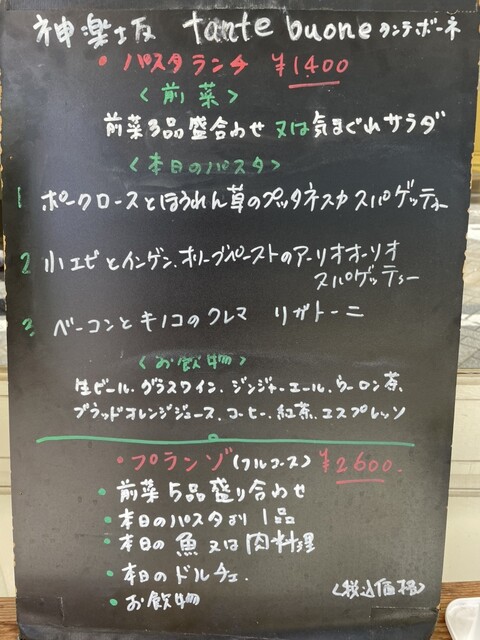 神楽坂 tante buone タンテボーネ
・パスタランチ ¥1400
<前菜>
前菜3品盛合わせ 又は気まぐれサラダ
<本日のパスタ>
1 ポークロースとほうれん草のプッタネスカ スパゲッティー
2 小エビとインゲン、オリーブペーストのアーリオオーリオ
スパゲッティー
3 ベーコンとキノコのクレマ リガトーニ
<お飲物>
生ビール、グラスワイン、ジンジャーエール、ウーロン茶、
ブラッドオレンジジュース、コーヒー、紅茶、エスプレッソ
・プランゾ(フルコース) ¥2600.
・前菜5品盛り合わせ
・本日のパスタより1品
・本日の魚又は肉料理
・本日のドルチェ
・お飲物
<税込価格>